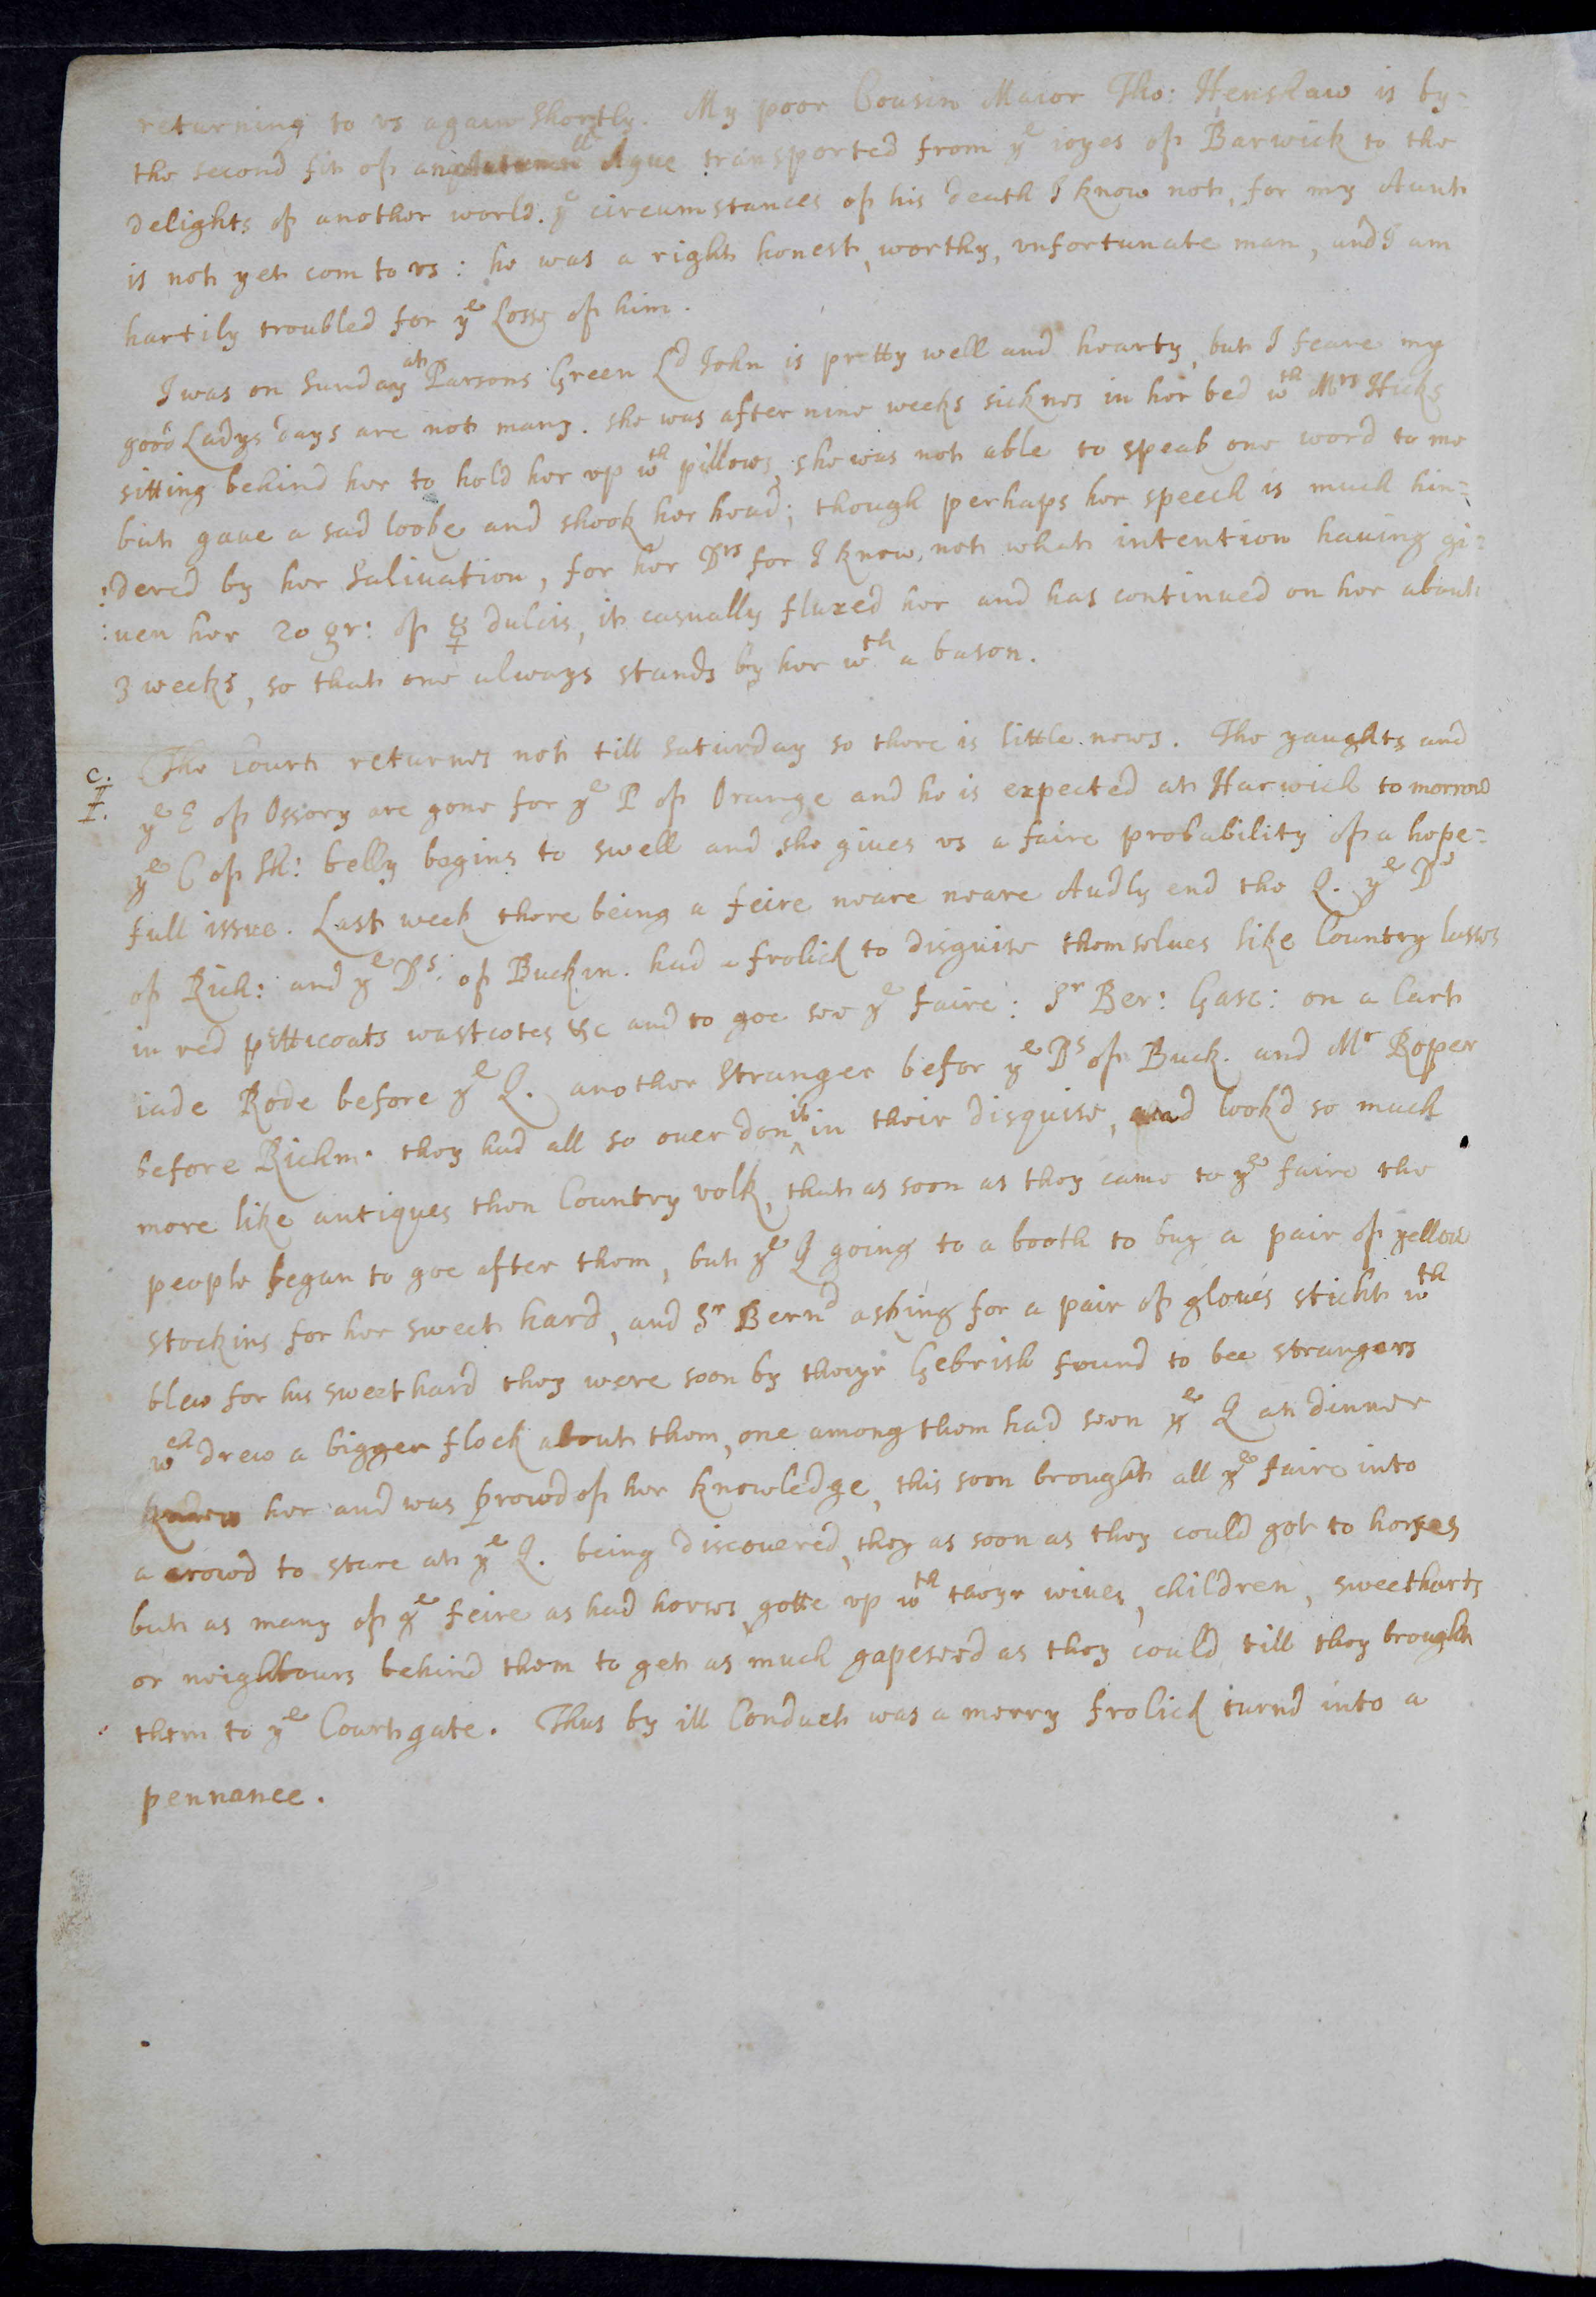 returning to vs again shortly. My poor Cousin Maior Tho: Henshaw is by-
the second fit of an Autumnll Ague transported from ye ioyes of Barwick to the
delights of another world. ye circumstances of his death I know not, for my Aunt
is not yet com to vs: he was a right honest, worthy, vnfortunate man, and I am
hartily troubled for ye Losse of him.
I was on Sunday at Parsons Green Ld John is pretty well and hearty, but I feare my
good Ladys days are not many. she was after nine weeks sicknes in her bed wth Mrs Hicks
sitting behind her to hold her vp wth pillows, she was not able to speak one word to me
but gaue a sad looke and shook her head; though perhaps her speech is much hin=
:dered by her Saliuation, for her Drs for I know not what intention hauing gi=
:uen her 20 gr: of ☿ dulcis, it casually fluxed her and has continued on her about
3 weeks, so that one always stands by her wth a bason.
C. The Court returnes not till Saturday so there is little news. The yaughts and
I. ye E of Ossory are gone for ye P of Orange and he is expected at Harwich to morrow
ye C of Sh: belly begins to swell and she giues vs a faire probability of a hope=
full issue. Last week there being a feire neare neare Audly end the Q. ye Ds
of Rich: and ye Ds. of Buckin. had a frolick to disguise themselues like Country lasses
in red petticoats wastcotes &c and to goe see ye faire: Sr Ber: Gasc: on a Cart
iade Rode before ye Q. another Stranger befor ye Ds of Buck. and Mr Roper
before Richm. they had all so ouer don it in their disguise, and look'd so much
more like antiques then Country volk, that as soon as they came to ye faire the
people began to goe after them, but ye Q going to a booth to buy a pair of yellow
stockins for her sweet hard, and Sr Bernd asking for a pair of gloues sticht wth
blew for his sweet hard they were soon by theyr Gebrish found to bee strangers
wch drew a bigger flock about them, one among them had seen ye Q at dinner
knew her and was prowd of her knowledge, this soon brought all ye faire into
a crowd to stare at ye Q. being discouered, they as soon as they could got to horses
but as many of ye feire as had horses gotte vp wth theyr wiues, children, sweetharts
or neighbours behind them to get as much gapeseed as they could till they brought
them to ye Court gate. Thus by ill Conduct was a merry frolick turnd into a
pennance.